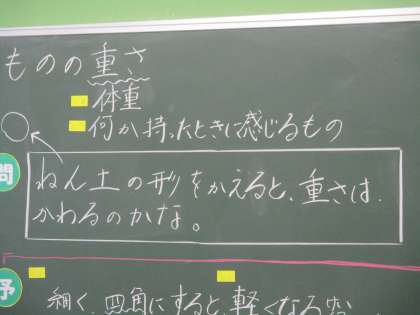 ものの重さ
体重
何か持ったときに感じるもの
問
ねん土の形をかえると、重さは、
かわるのかな。
予
細く、四角にすると、軽くなる